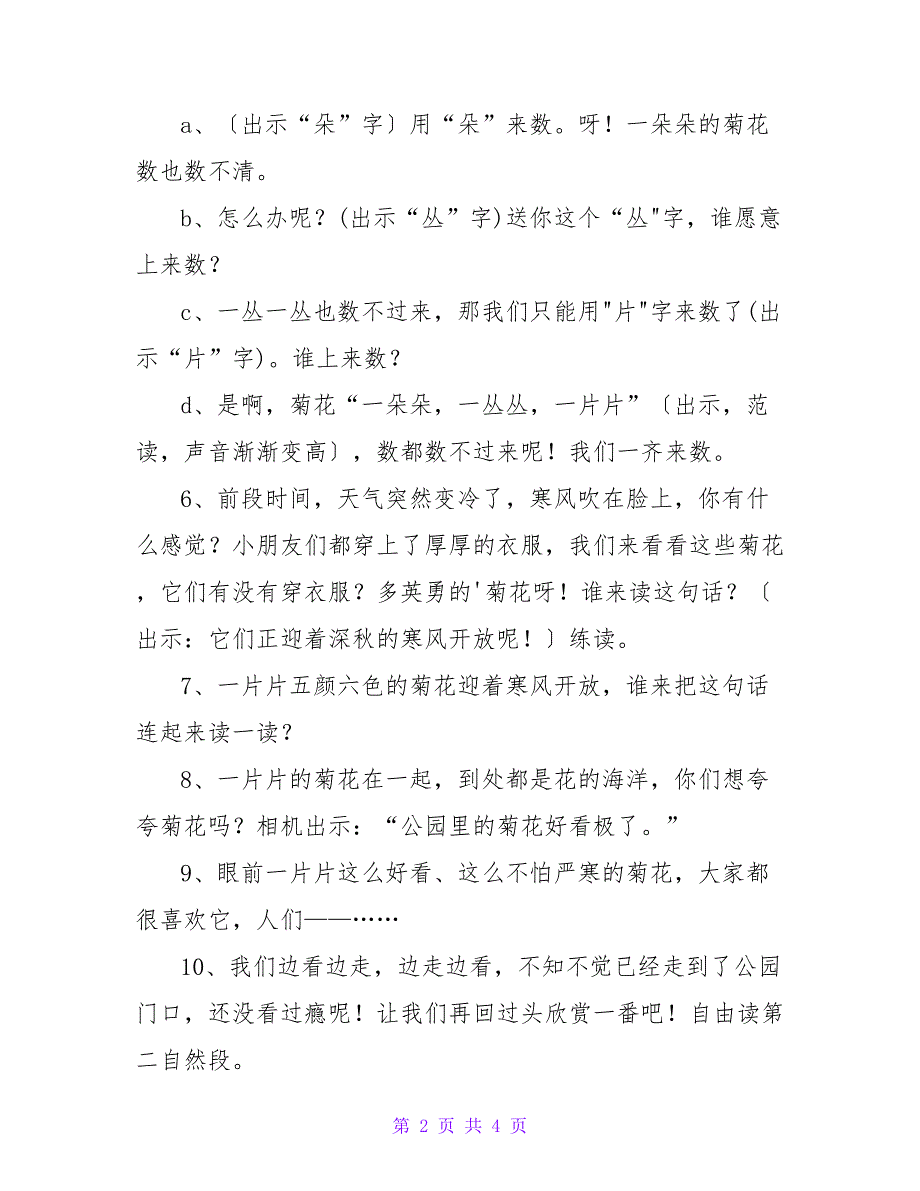 a、〔出示“朵”字〕用“朵”来数。呀！一朵朵的菊花
数也数不清。
b、怎么办呢？(出示“丛”字)送你这个“丛"字，谁愿意
上来数？
c、一丛一丛也数不过来，那我们只能用"片"字来数了(出
示“片”字)。谁上来数？
d、是啊，菊花“一朵朵，一丛丛，一片片”〔出示，范
读，声音渐渐变高〕，数都数不过来呢！我们一齐来数。
6、前段时间，天气突然变冷了，寒风吹在脸上，你有什
么感觉？小朋友们都穿上了厚厚的衣服，我们来看看这些菊花
，它们有没有穿衣服？多英勇的'菊花呀！谁来读这句话？〔
出示：它们正迎着深秋的寒风开放呢！〕练读。
7、一片片五颜六色的菊花迎着寒风开放，谁来把这句话
连起来读一读？
8、一片片的菊花在一起，到处都是花的海洋，你们想夸
夸菊花吗？相机出示：“公园里的菊花好看极了。”
9、眼前一片片这么好看、这么不怕严寒的菊花，大家都
很喜欢它，人们——……
10、我们边看边走，边走边看，不知不觉已经走到了公园
门口，还没看过瘾呢！让我们再回过头欣赏一番吧！自由读第
二自然段。
第 2 页 共 4 页